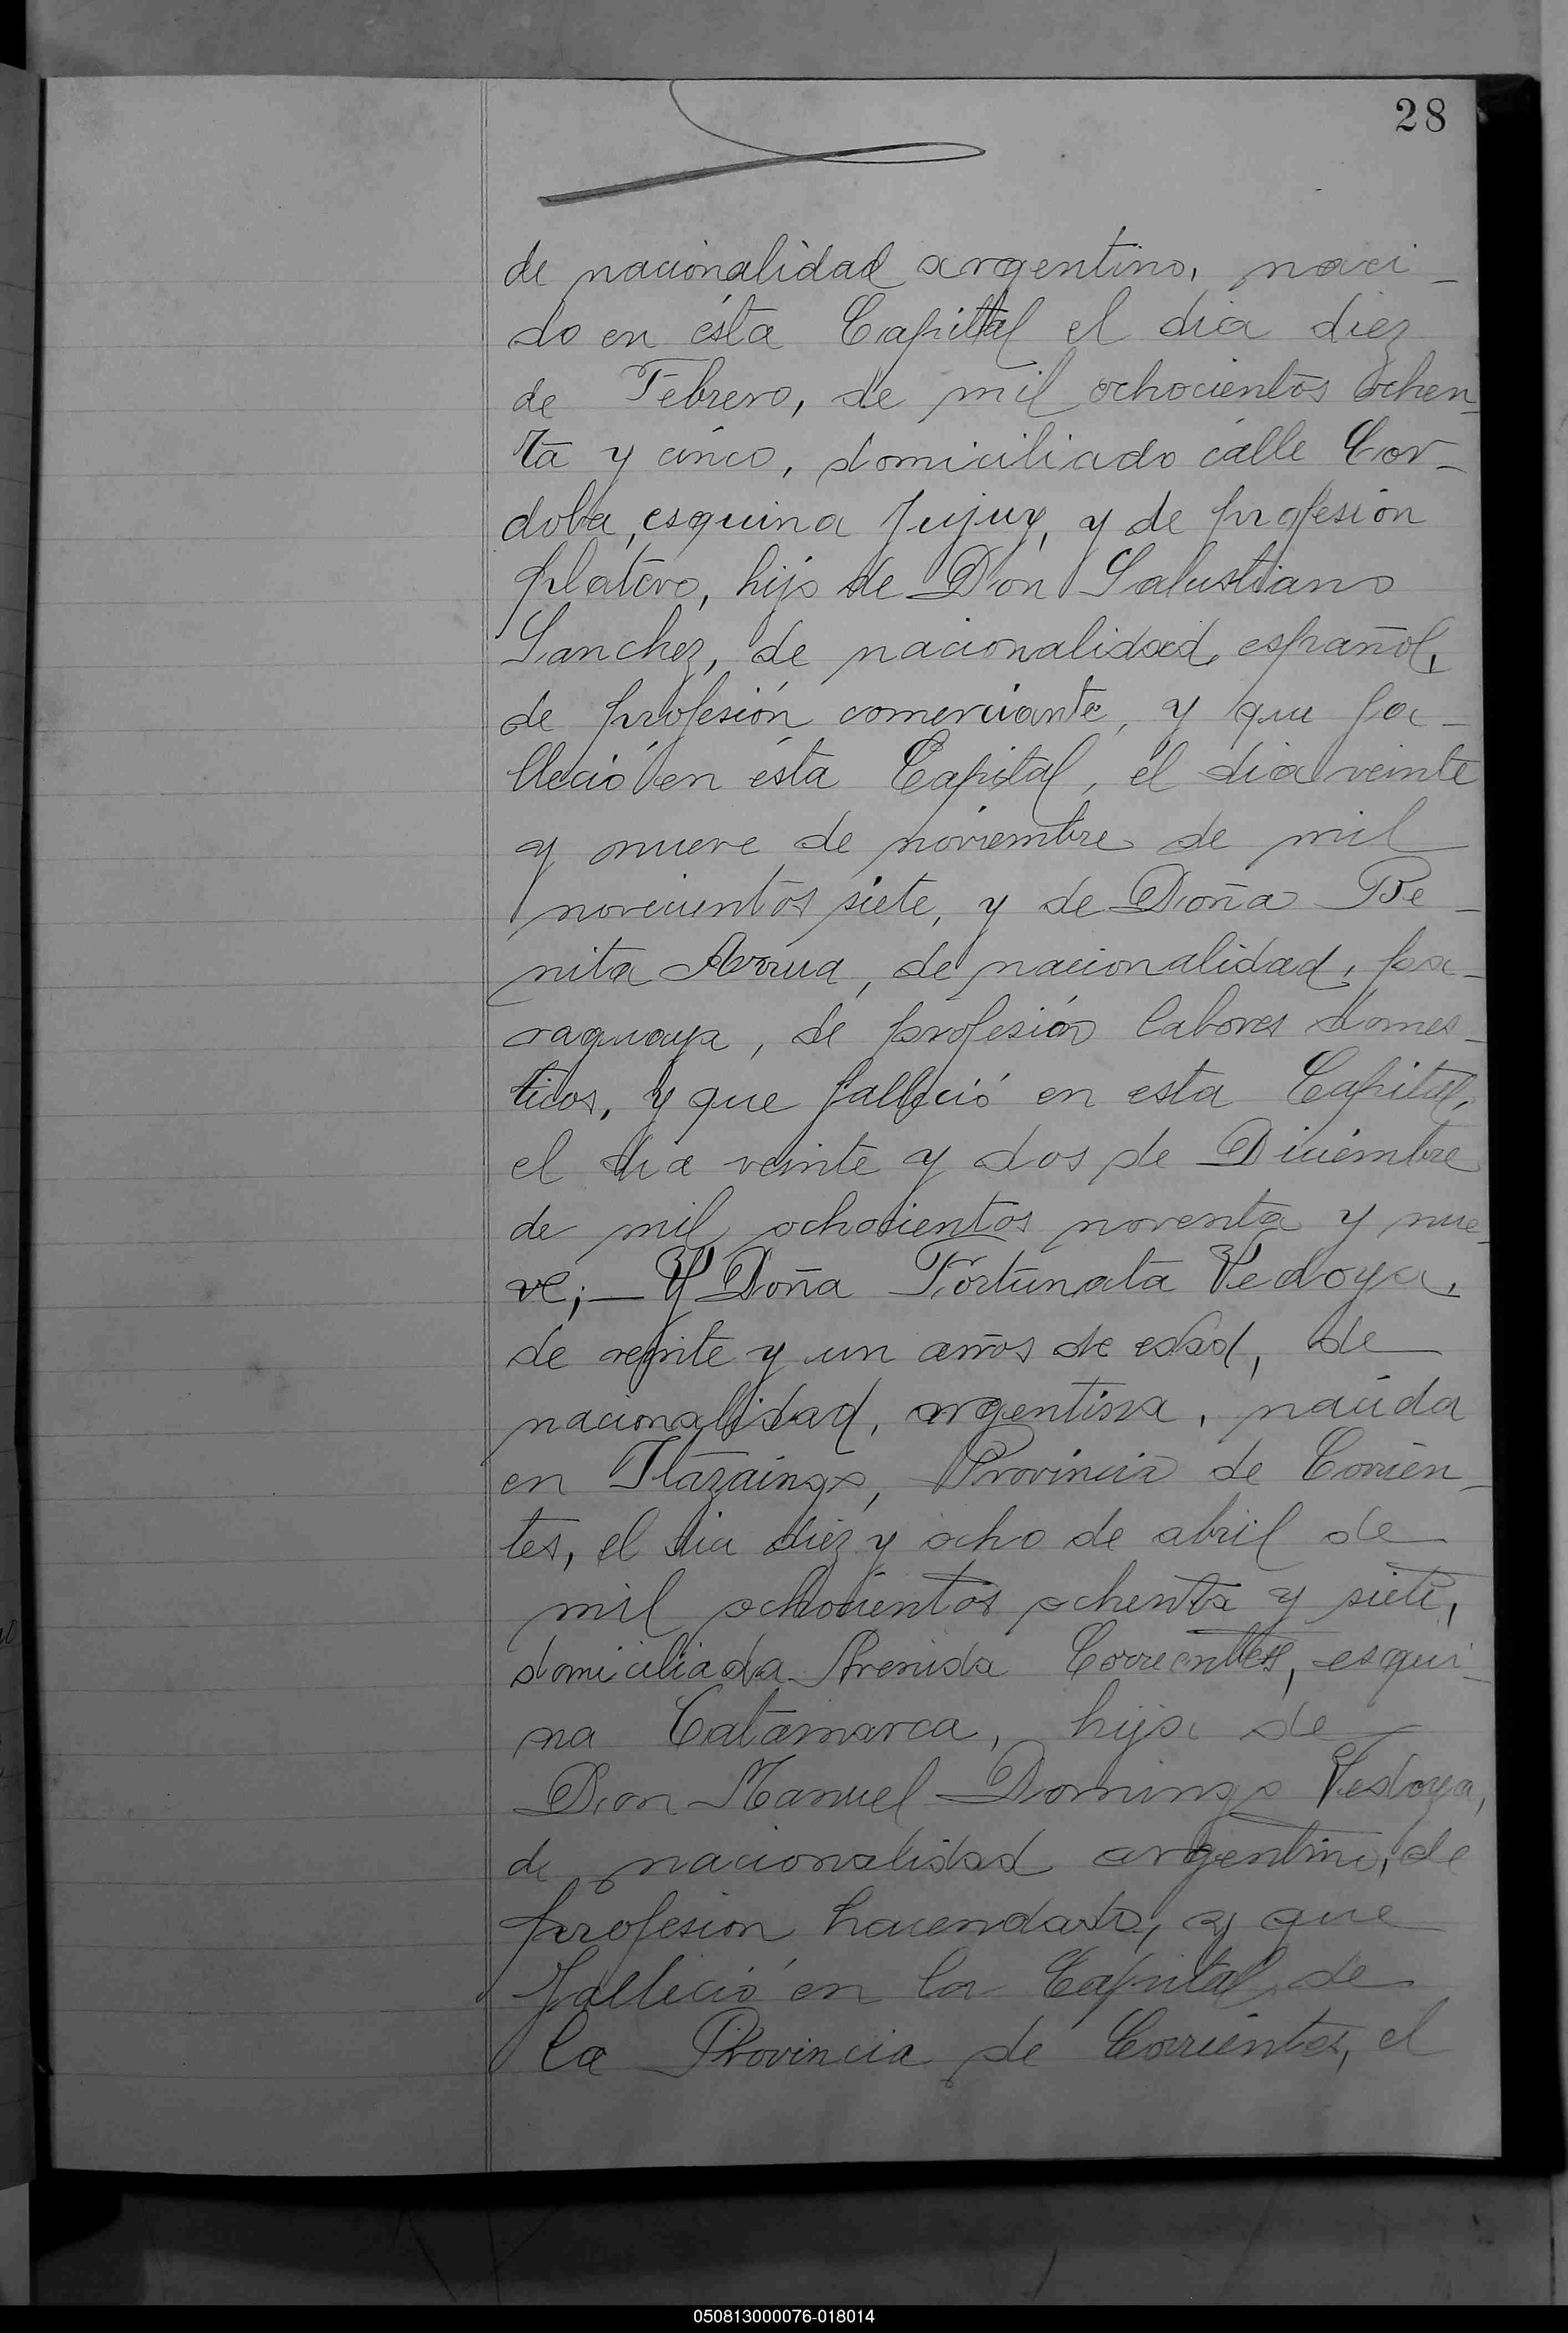 28
de nacionalidad argentino, naci-
do en ésta Capital el dia diez
de Febrero, de mil ochocientos ochen-
ta y cinco, domiciliado calle Cor-
doba, esquina Jujuy, y de profesión
platero, hijo de Don Salustiano
Sanchez, de nacionalidad, español,
de profesión comerciante, y que fa-
lleció en ésta Capital, el dia veinte
y nueve de noviembre de mil
novecientos siete, y de Doña Be-
nita Avrua, de nacionalidad, pa-
raguaya, de profesión labores domes-
ticos, y que falleció en esta Capital,
el dia veinte y dos de Diciembre
de mil ochocientos noventa y nue-
ve; — Y Doña Fortunata Vedoya,
de veinte y un años de edad, de
nacionalidad, argentina, nacida
en Itazaingo, Provincia de Corrien-
tes, el dia diez y ocho de abril de
mil ochocientos ochenta y siete,
domiciliada Avenida Corrientes, esqui-
na Catamarca, hija de
Don Manuel Domingo Vedoya,
de nacionalidad argentino, de
profesion hacendado, y que
falleció en la Capital de
la Provincia de Corrientes, el
050813000076-018014